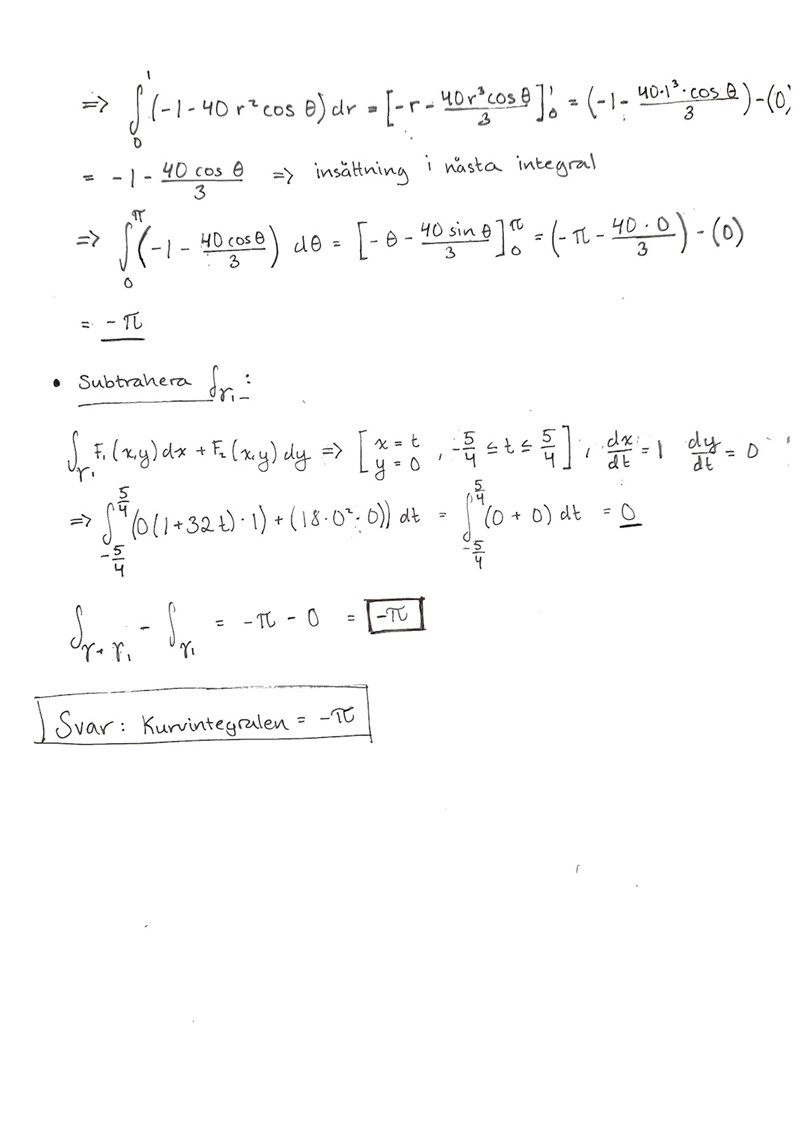 => ∫₀¹ (-1-40 r² cos θ) dr = [-r - 40r³cosθ/3]₀¹ = (-1 - 40·1³·cos θ/3) - (0)
= -1 - 40 cos θ/3 => insättning i nästa integral
=> ∫₀^π (-1 - 40cosθ/3) dθ = [-θ - 40 sin θ/3]₀^π = (-π - 40·0/3) - (0)
= -π
• Subtrahera ∫γ₁:
∫γ₁ F₁(x,y)dx + F₂(x,y)dy => [x = t, y = 0, -5/4 ≤ t ≤ 5/4], dx/dt = 1 dy/dt = 0
=> ∫_{-5/4}^{5/4} (0(1+32t)·1) + (18·0²·0)) dt = ∫_{-5/4}^{5/4} (0 + 0) dt = 0
∫γ+γ₁ - ∫γ₁ = -π - 0 = -π
Svar: Kurvintegralen = -π